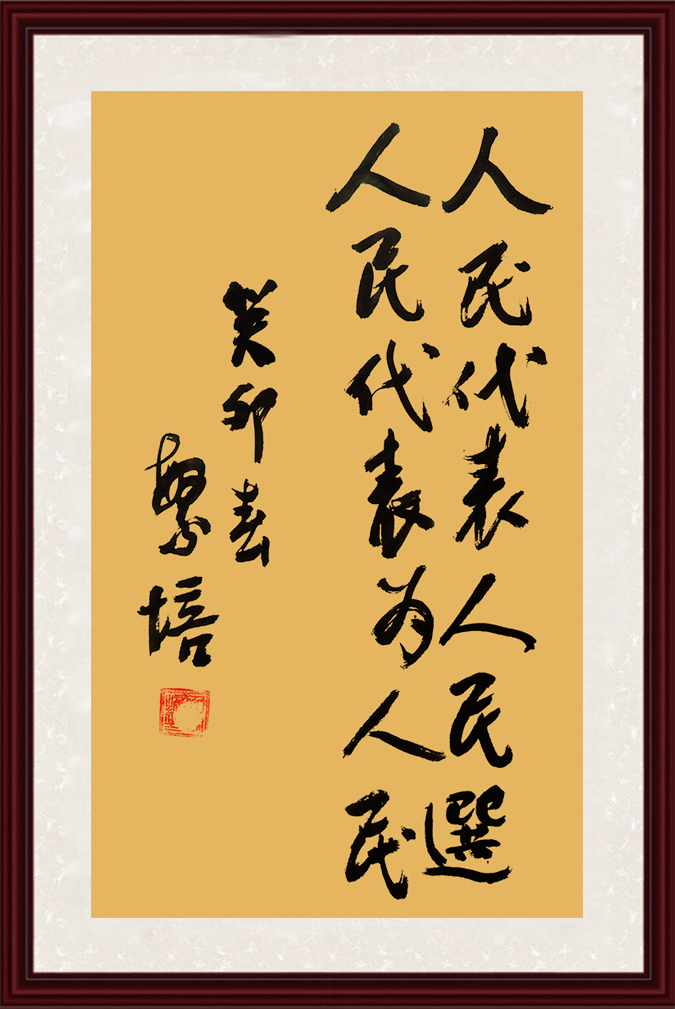 人民代表人民選
人民代表为人民
癸卯春
繁培